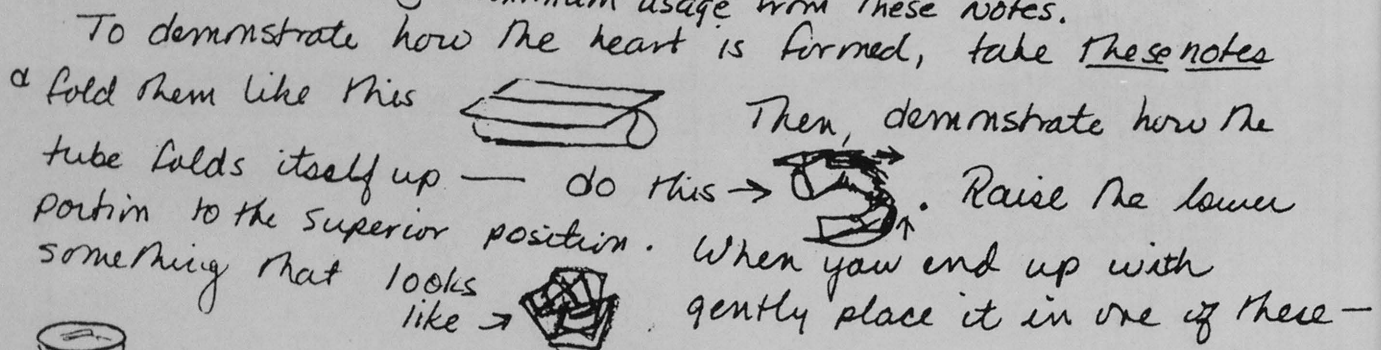 usage from these notes.
To demonstrate how the heart is formed, take these notes
& fold them like this Then, demonstrate how the
tube folds itself up — do this → . Raise the lower
portion to the superior position. When you end up with
something that looks like → gently place it in one of these —